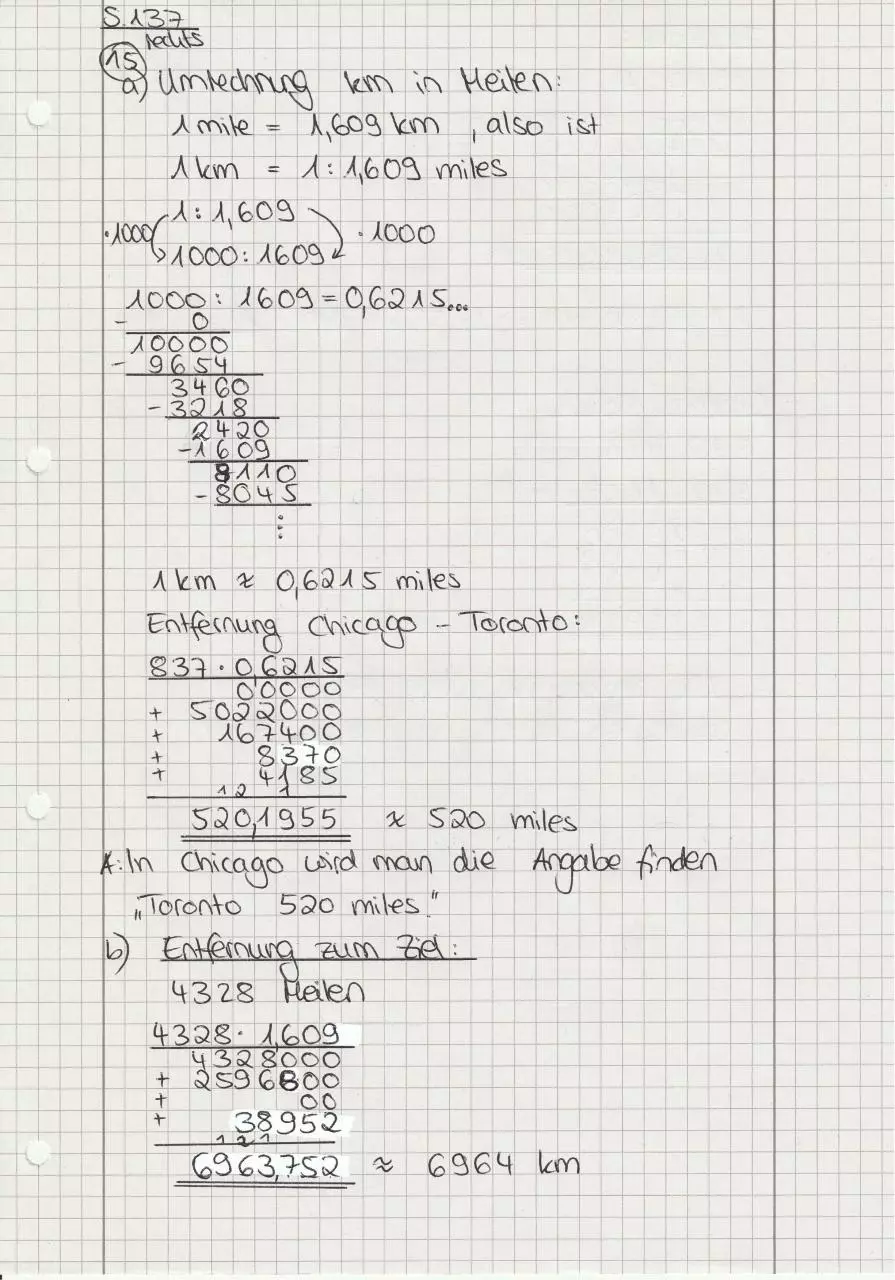 S. 137
rechts
15
a) Umrechnung km in Meilen:
1 mile = 1,609 km , also ist
1 km = 1 : 1,609 miles
1 : 1,609
·1000 ·1000
1000 : 1609
1000 : 1609 = 0,6215...
- 0
10000
- 9654
3460
- 3218
2420
- 1609
8110
- 8045
⋮
1 km ≈ 0,6215 miles
Entfernung Chicago - Toronto:
837 · 0,6215
00000
+ 5022000
+ 167400
+ 8370
+ 4185
1 2 1
520,1955 ≈ 520 miles
A: In Chicago wird man die Angabe finden
„Toronto 520 miles."
b) Entfernung zum Ziel:
4328 Meilen
4328 · 1,609
4328000
+ 2596800
+ 00
+ 38952
1 2 1
6963,752 ≈ 6964 km